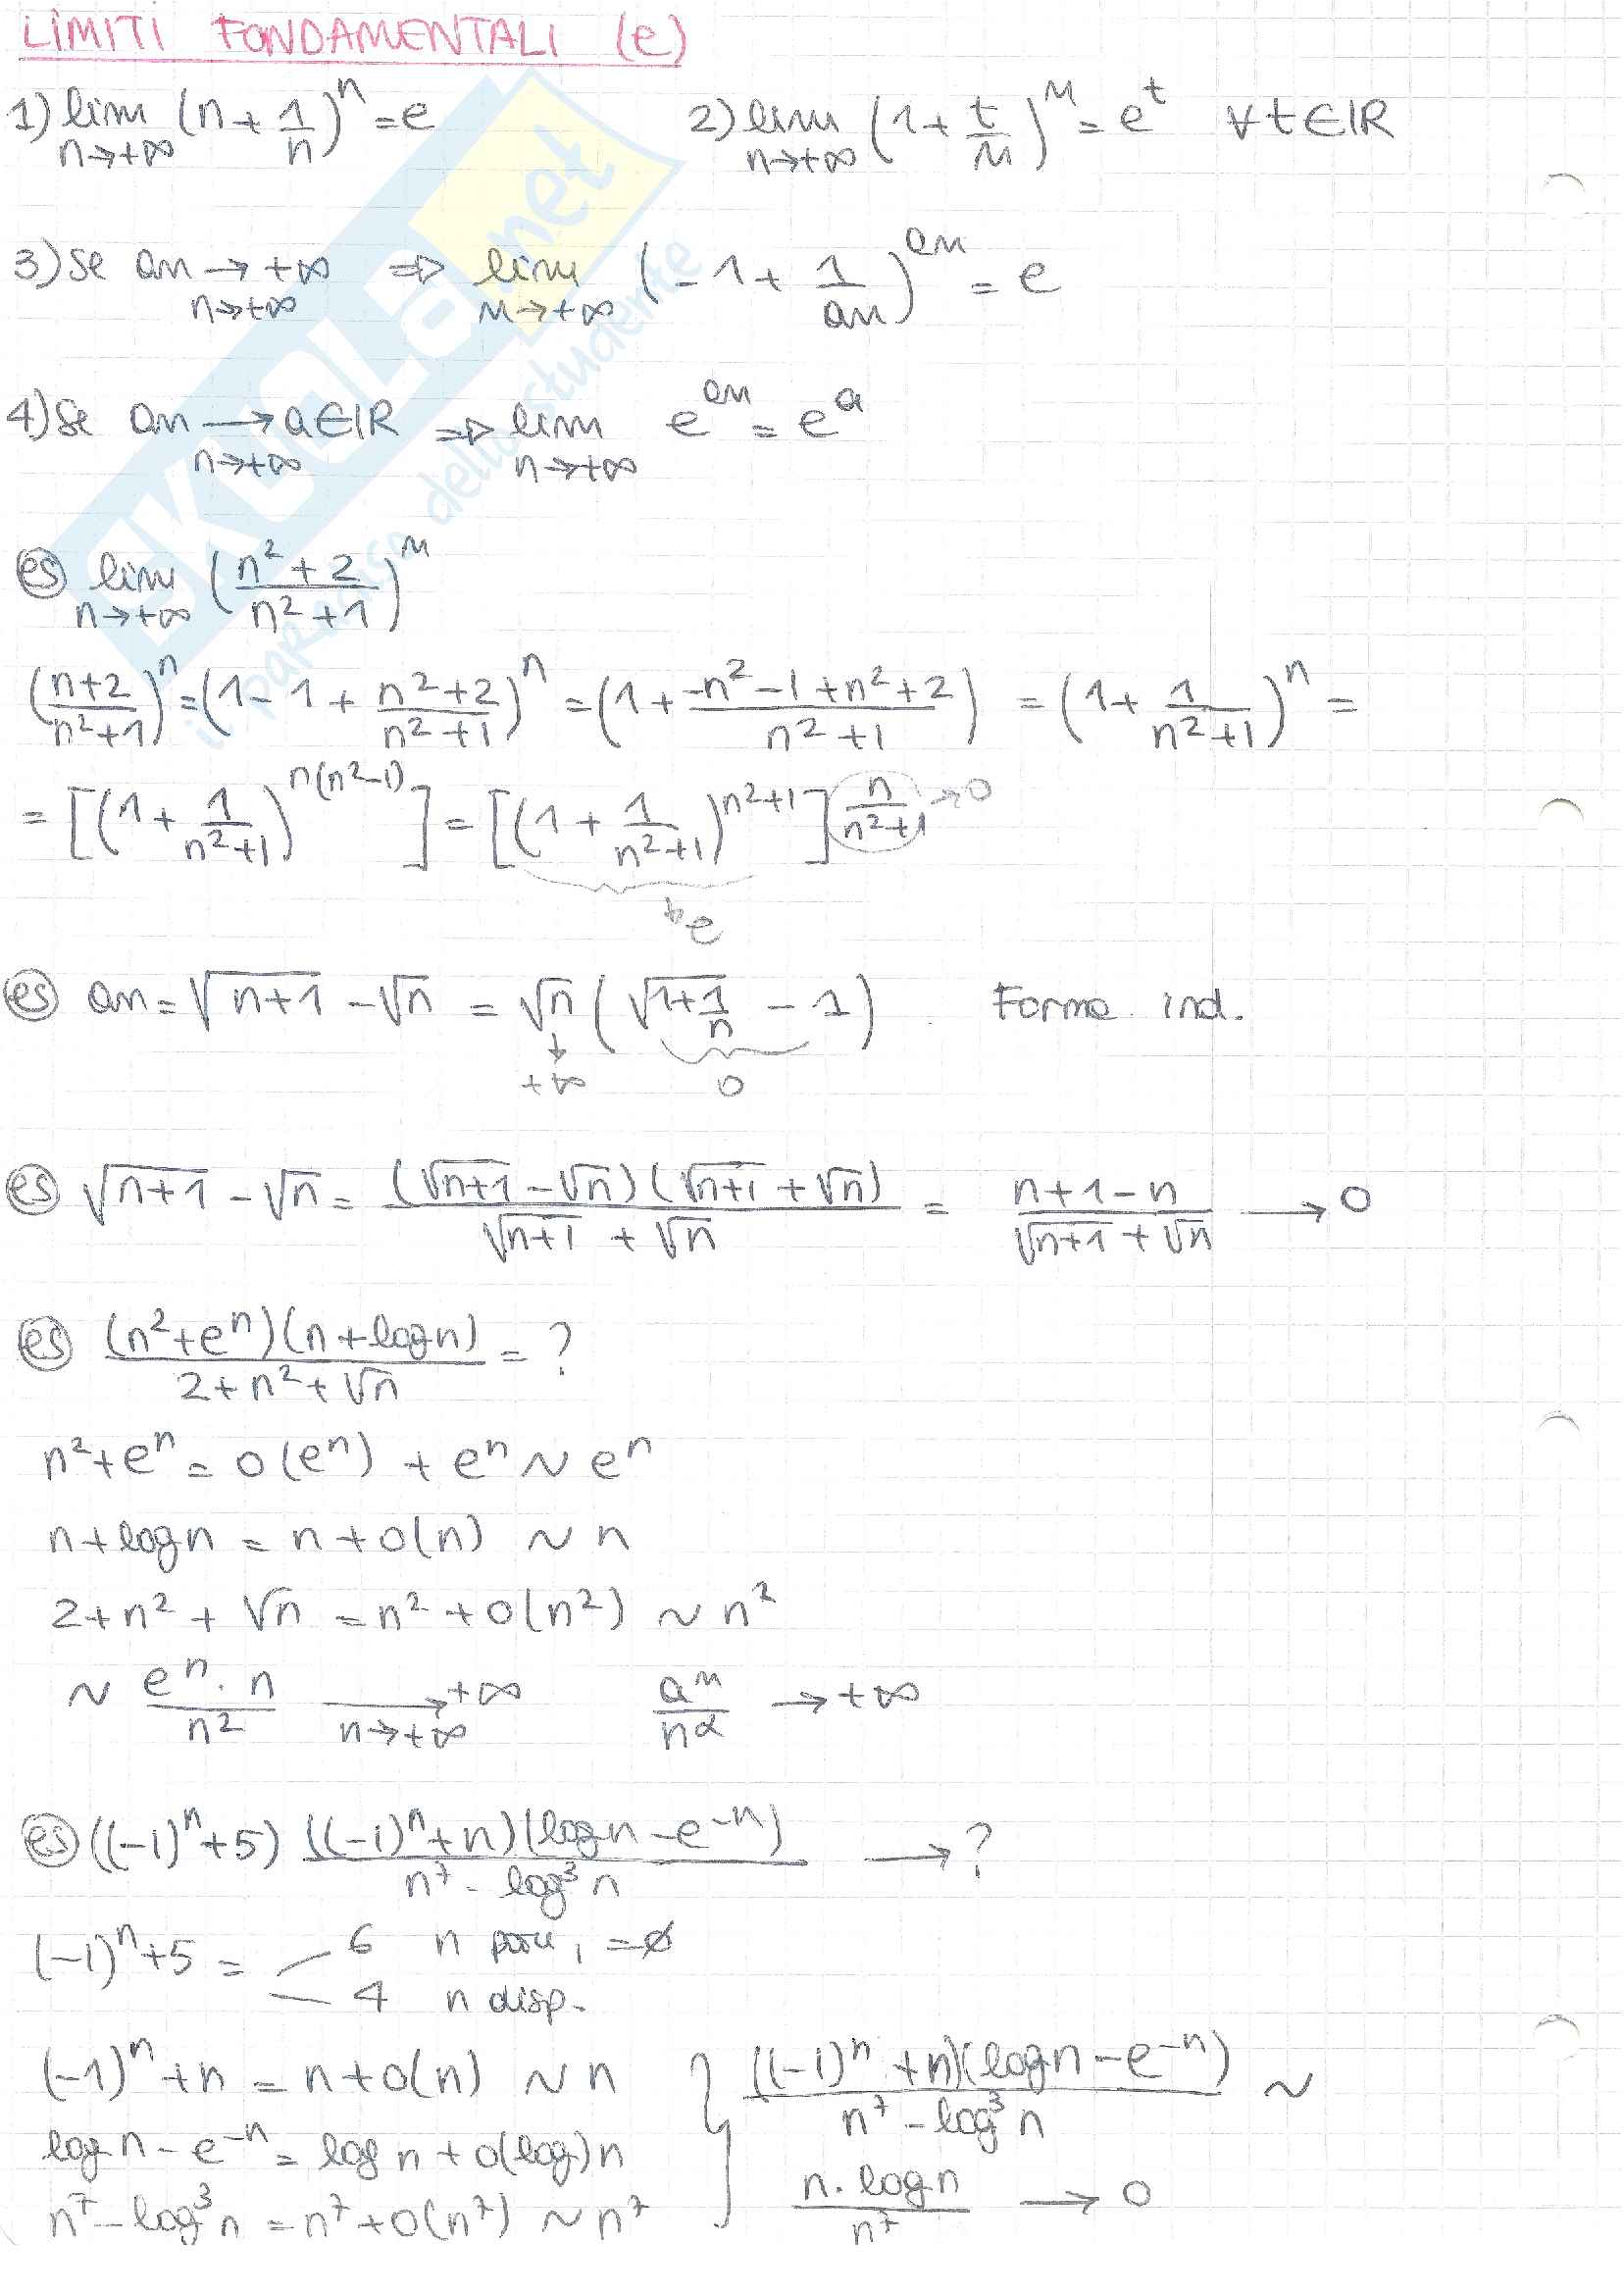 LIMITI FONDAMENTALI (e)
1) lim n→+∞ (n + 1/n)^n = e 2) lim n→+∞ (1 + t/n)^n = e^t ∀ t ∈ IR
3) Se an → +∞ n→+∞ ⇒ lim n→+∞ (-1 + 1/an)^an = e
4) Se an → a ∈ IR n→+∞ ⇒ lim n→+∞ e^an = e^a
es lim n→+∞ ((n²+2)/(n²+1))^n
((n+2)/(n²+1))^n = (1 - 1 + (n²+2)/(n²+1))^n = (1 + (-n²-1+n²+2)/(n²+1)) = (1 + 1/(n²+1))^n =
= [(1 + 1/(n²+1))^n(n²-1)] = [(1 + 1/(n²+1))^n²+1]^(n/(n²+1)) → 0
e
es an = √(n+1) - √n = √n (√(1+1/n) - 1) Forma ind.
+∞ 0
es √(n+1) - √n = (√(n+1) - √n)(√(n+1) + √n) / (√(n+1) + √n) = (n+1-n)/(√(n+1) + √n) → 0
es (n²+e^n)(n+logn) / (2+n²+√n) = ?
n²+e^n = o(e^n) + e^n ~ e^n
n+logn = n+o(n) ~ n
2+n²+√n = n²+o(n²) ~ n²
~ (e^n · n)/n² → +∞ n→+∞ a^n/n^α → +∞
es ((-1)^n+5) ((-1)^n+n)(logn - e^-n) / (n⁷ - log³n) → ?
(-1)^n+5 = 6 n pari, =∅
4 n disp.
(-1)^n+n = n+o(n) ~ n } ((-1)^n+n)(logn - e^-n) / (n⁷ - log³n) ~
logn - e^-n = logn + o(log)n
n⁷ - log³n = n⁷+o(n⁷) ~ n⁷ (n·logn)/n⁷ → 0
SKUOLA.net
il paradiso dello studente